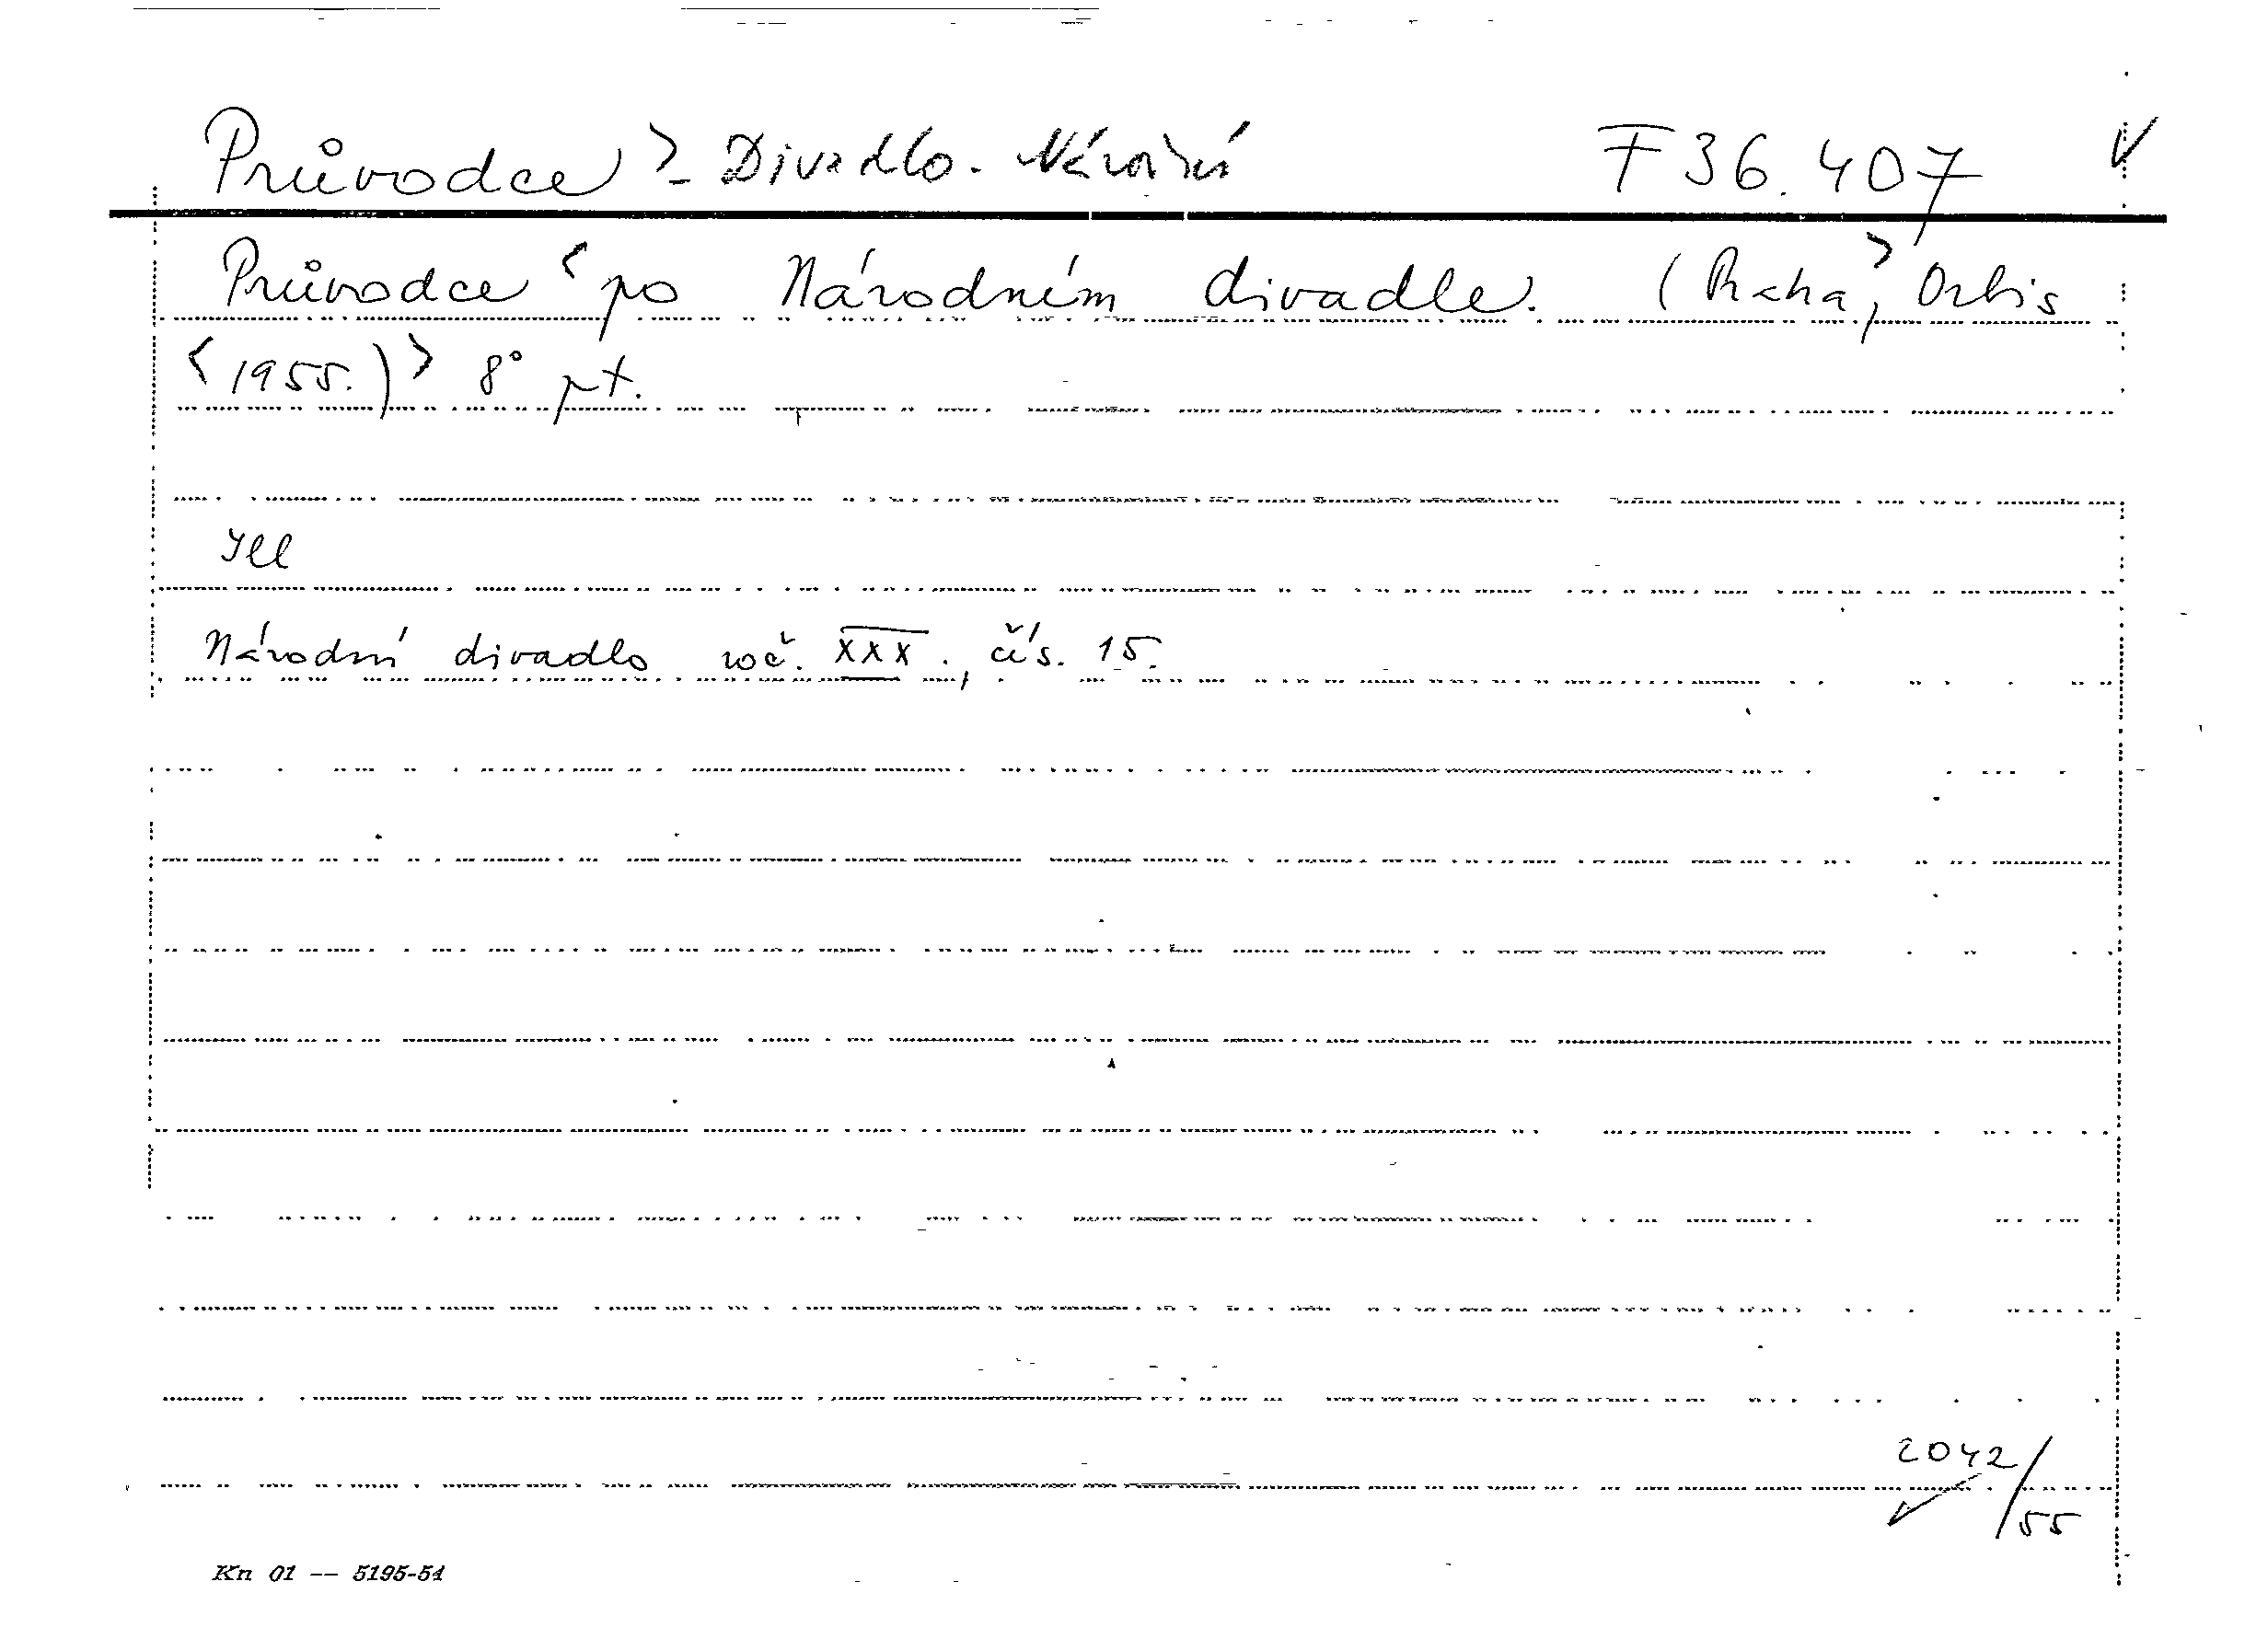 Průvodce > - Divadlo. Národní F 36.407
Průvodce < po Národním divadle. (Praha, > Orbis
< 1955.) > 8° pt.
Ill
Národní divadlo roč. XXX., čís. 15.
2042/55
Kn 01 -- 5195-54